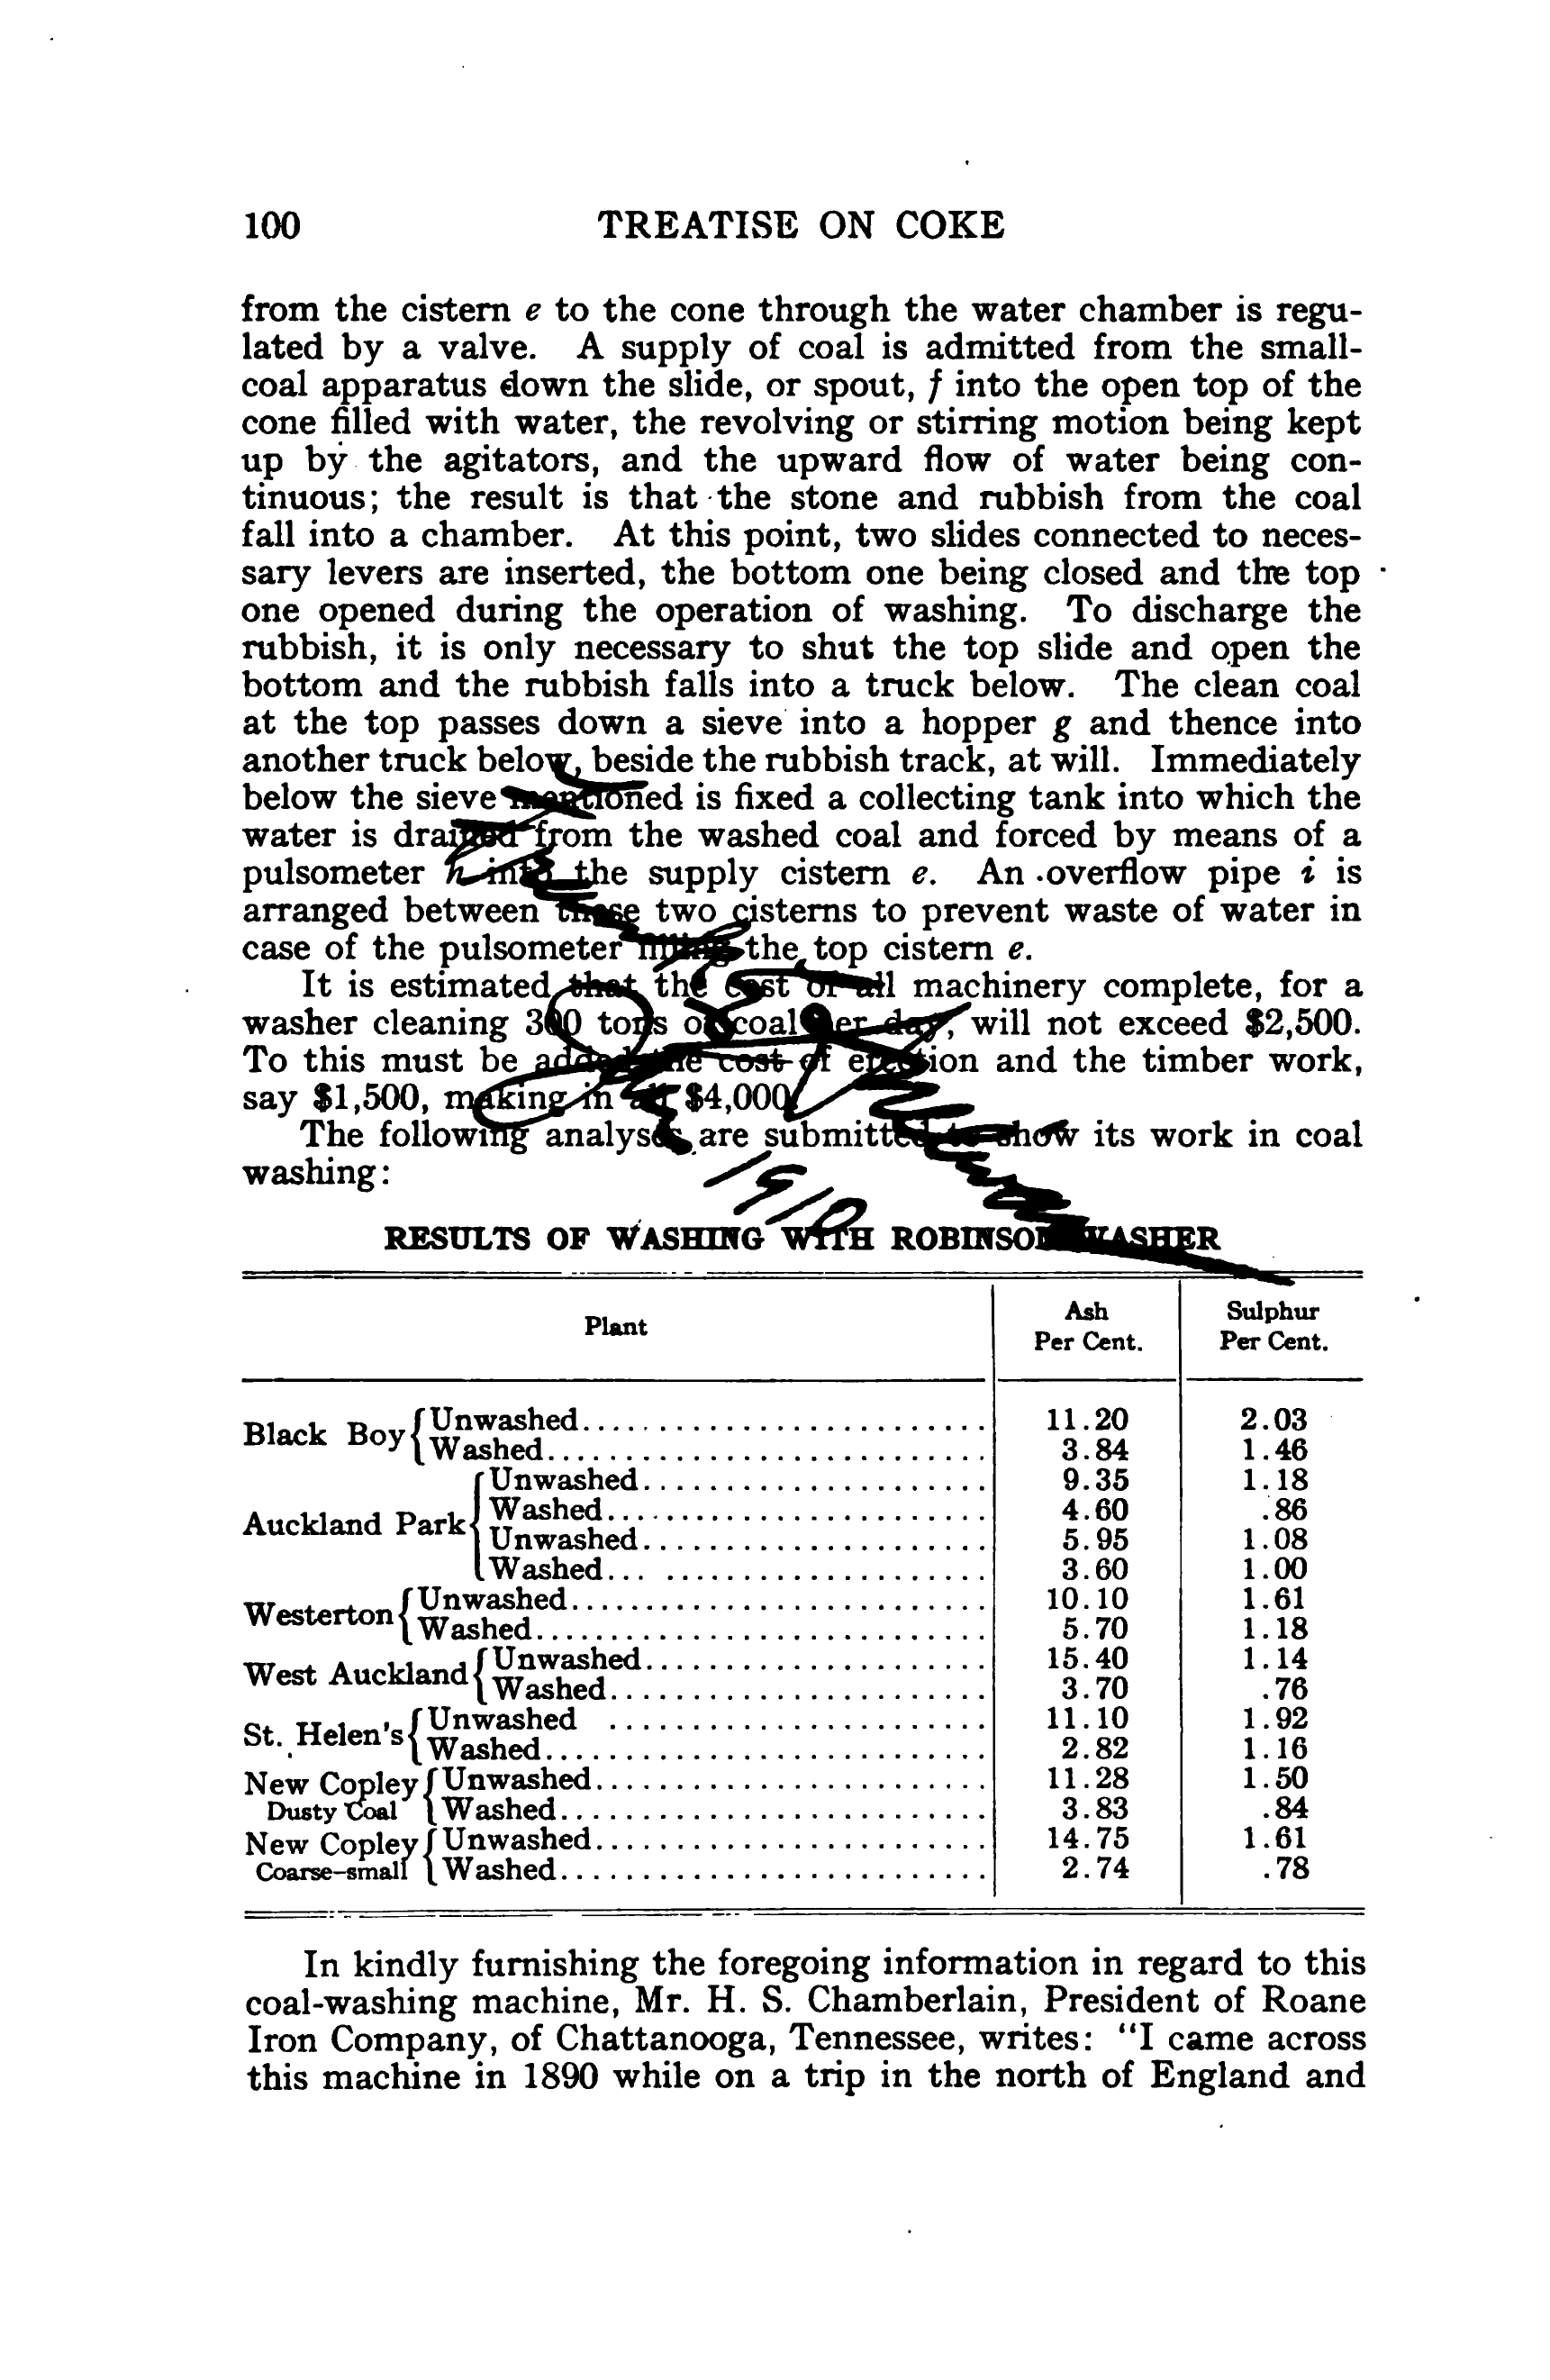 100 TREATISE ON COKE
from the cistern e to the cone through the water chamber is regu-
lated by a valve. A supply of coal is admitted from the small-
coal apparatus down the slide, or spout, f into the open top of the
cone filled with water, the revolving or stirring motion being kept
up by the agitators, and the upward flow of water being con-
tinuous; the result is that the stone and rubbish from the coal
fall into a chamber. At this point, two slides connected to neces-
sary levers are inserted, the bottom one being closed and the top
one opened during the operation of washing. To discharge the
rubbish, it is only necessary to shut the top slide and open the
bottom and the rubbish falls into a truck below. The clean coal
at the top passes down a sieve into a hopper g and thence into
another truck below, beside the rubbish track, at will. Immediately
below the sieve mentioned is fixed a collecting tank into which the
water is drained from the washed coal and forced by means of a
pulsometer h into the supply cistern e. An overflow pipe i is
arranged between these two cisterns to prevent waste of water in
case of the pulsometer filling the top cistern e.
It is estimated that the cost of all machinery complete, for a
washer cleaning 300 tons of coal per day, will not exceed $2,500.
To this must be added the cost of erection and the timber work,
say $1,500, making in all $4,000.
The following analyses are submitted to show its work in coal
washing:
1910
RESULTS OF WASHING WITH ROBINSON WASHER
Plant Ash Per Cent. Sulphur Per Cent.
Black Boy Unwashed 11.20 2.03
Washed 3.84 1.46
Auckland Park Unwashed 9.35 1.18
Washed 4.60 .86
Unwashed 5.95 1.08
Washed 3.60 1.00
Westerton Unwashed 10.10 1.61
Washed 5.70 1.18
West Auckland Unwashed 15.40 1.14
Washed 3.70 .76
St. Helen's Unwashed 11.10 1.92
Washed 2.82 1.16
New Copley Unwashed 11.28 1.50
Dusty Coal Washed 3.83 .84
New Copley Unwashed 14.75 1.61
Coarse-small Washed 2.74 .78
In kindly furnishing the foregoing information in regard to this
coal-washing machine, Mr. H. S. Chamberlain, President of Roane
Iron Company, of Chattanooga, Tennessee, writes: "I came across
this machine in 1890 while on a trip in the north of England and